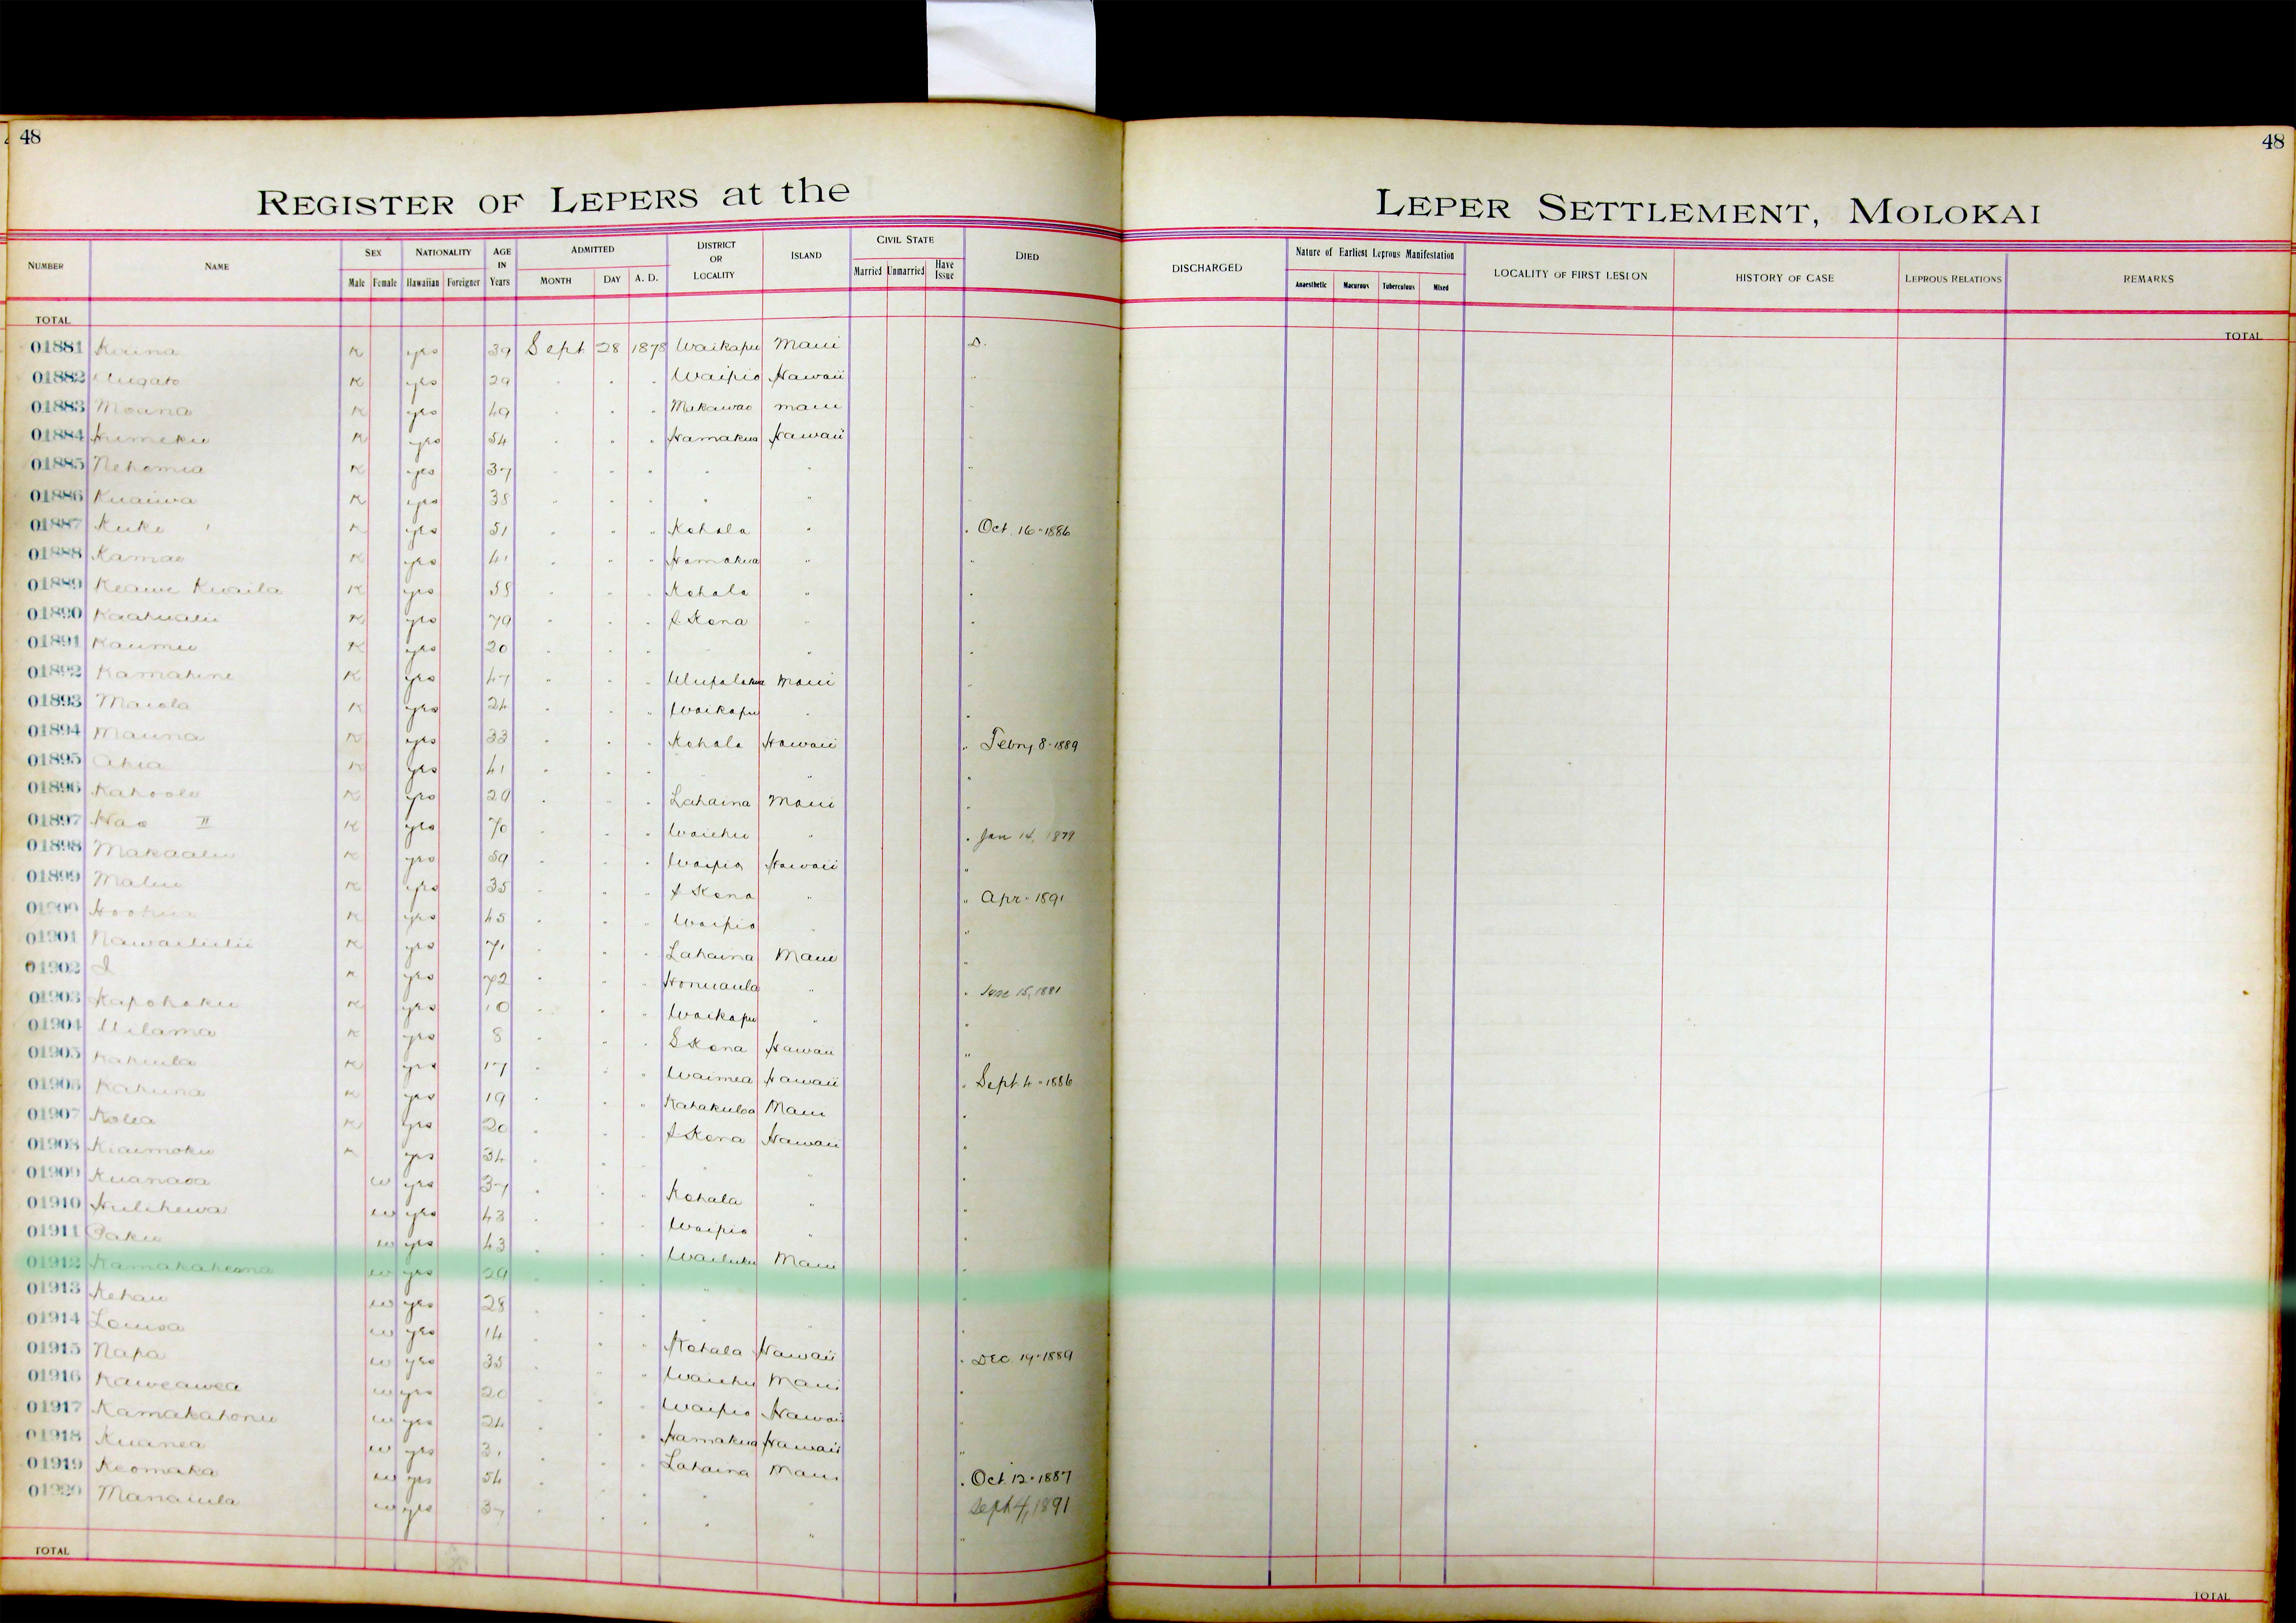 48
48
REGISTER OF LEPERS at the
LEPER SETTLEMENT, MOLOKAI
NUMBER NAME SEX NATIONALITY AGE IN Years ADMITTED DISTRICT OR LOCALITY ISLAND CIVIL STATE DIED
Male Female Hawaiian Foreigner MONTH DAY A. D. Married Unmarried Have Issue
DISCHARGED Nature of Earliest Leprous Manifestation LOCALITY OF FIRST LESION HISTORY OF CASE LEPROUS RELATIONS REMARKS
Anaesthetic Macurous Tuberculous Mixed
TOTAL
TOTAL
01881 Kuina K yes 39 Sept 28 1878 Waikapu Maui D.
01882 K yes 29 " " " Waipio Hawaii "
01883 Moana K yes 49 " " " Makawao Maui "
01884 Humeku K yes 54 " " " Hamakua Hawaii "
01885 Nehemia K yes 37 " " " " " "
01886 Kuaiwa K yes 38 " " " " " "
01887 Kuke K yes 51 " " " Kohala " " Oct. 16-1886
01888 Kamao K yes 41 " " " Hamakua " "
01889 Keawe Kuaila K yes 58 " " " Kohala " "
01890 Kaahualii K yes 79 " " " S Kona " "
01891 Kaumu K yes 20 " " " " " "
01892 Kamahine K yes 47 " " " Ulupalakua Maui "
01893 Maiola K yes 24 " " " Waikapu " "
01894 Mauna K yes 33 " " " Kohala Hawaii " Febry 8-1889
01895 Ahia K yes 41 " " " " "
01896 Kahoole K yes 29 " " " Lahaina Maui "
01897 Hao II K yes 70 " " " Waiehu " " Jan 14, 1879
01898 Makaalu K yes 59 " " " Waipio Hawaii "
01899 Malu K yes 35 " " " S Kona " " Apr. 1891
01900 Hoohua K yes 45 " " " Waipio " "
01901 Nawailiilii K yes 71 " " " Lahaina Maui "
01902 I K yes 72 " " " Honuaula " " June 15, 1881
01903 Kapohaku K yes 10 " " " Waikapu " "
01904 Uilama K yes 8 " " " S Kona Hawaii "
01905 Kahiula K yes 17 " " " Waimea Hawaii " Sept. 4-1886
01906 Kahuna K yes 19 " " " Kahakuloa Maui "
01907 Kolea K yes 20 " " " S Kona Hawaii "
01908 Kiaimoku K yes 34 " " " " "
01909 Kuanaoa w yes 37 " " " Kohala " "
01910 Hulihewa w yes 43 " " " Waipio " "
01911 Paku w yes 43 " " " Wailuku Maui "
01912 Kamakakeona w yes 29 " " " " "
01913 Kehau w yes 28 " " " "
01914 Louisa w yes 14 " " " Kohala Hawaii " Dec. 19-1889
01915 Napa w yes 35 " " " Waiehu Maui "
01916 Kaweawea w yes 20 " " " Waipio Hawaii "
01917 Kamakahonu w yes 24 " " " Hamakua Hawaii "
01918 Kuanea w yes 31 " " " Lahaina Maui " Oct. 12-1887
01919 Keomaka w yes 54 " " " " " Sept 4, 1891
01920 Manaiula w yes 37 " " " " " "
TOTAL
TOTAL